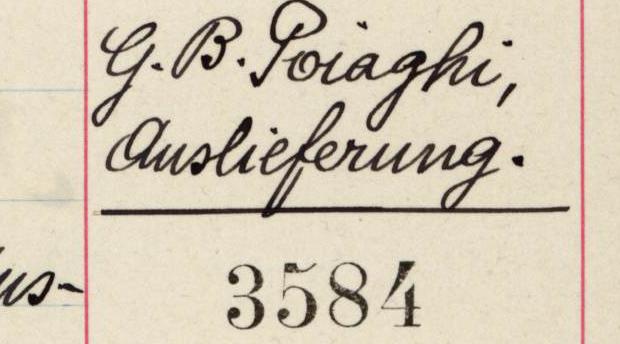 G. B. Poiaghi,
Auslieferung.
us-
3584